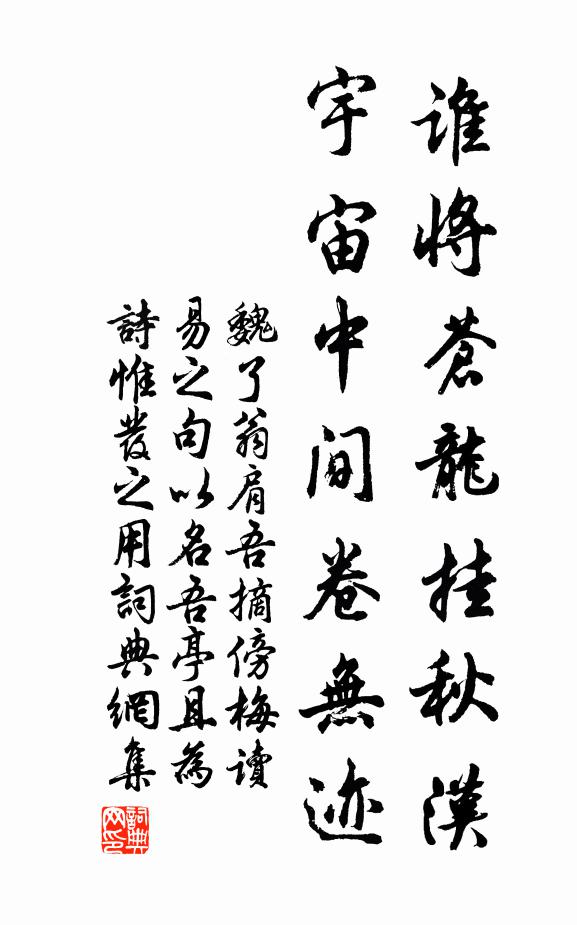 誰將蒼龍挂秋漢
宇宙中間卷無迹
魏了翁肩吾摘傍梅读
易之句以名吾亭且為
詩惟發之用詞典網集
詞典
网印